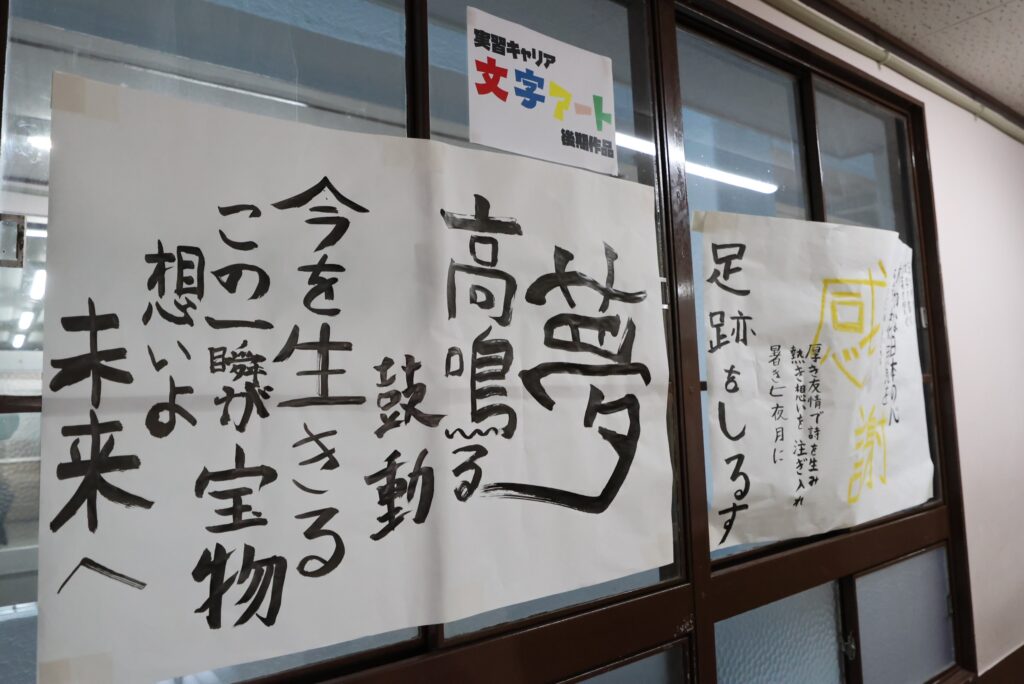 実習キャリア
文字アート
後期作品
夢
高鳴る
鼓動
今を生きる
この一瞬が宝物
想いよ
未来へ
感謝
厚き友情で詩を生み
熱き想いを注ぎ入れ
足跡をしるす